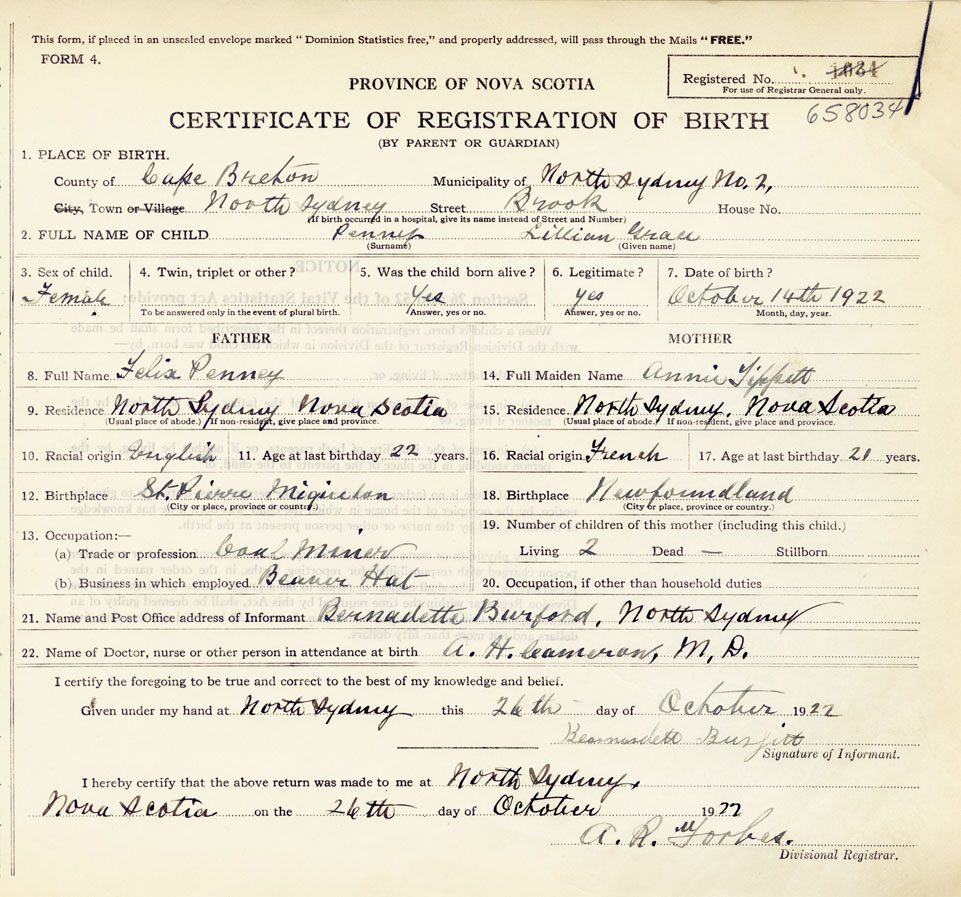 This form, if placed in an unsealed envelope marked “ Dominion Statistics free,” and properly addressed, will pass through the Mails “FREE.”
FORM 4.
PROVINCE OF NOVA SCOTIA
Registered No.
For use of Registrar General only.
658034
CERTIFICATE OF REGISTRATION OF BIRTH
(BY PARENT OR GUARDIAN)
1. PLACE OF BIRTH.
County of Cape Breton Municipality of North Sydney No. 2,
City, Town or Village North Sydney Street Brook House No.
(If birth occurred in a hospital, give its name instead of Street and Number)
2. FULL NAME OF CHILD Penney Lillian Grace
(Surname) (Given name)
3. Sex of child. 4. Twin, triplet or other? 5. Was the child born alive? 6. Legitimate? 7. Date of birth?
Female Yes yes October 14th 1922
To be answered only in the event of plural birth. Answer, yes or no. Answer, yes or no. Month, day, year.
FATHER MOTHER
8. Full Name Felix Penney 14. Full Maiden Name Annie Tippett
9. Residence North Sydney Nova Scotia 15. Residence North Sydney, Nova Scotia
(Usual place of abode.) If non-resident, give place and province. (Usual place of abode.) If non-resident, give place and province.
10. Racial origin English 11. Age at last birthday 22 years. 16. Racial origin French 17. Age at last birthday 21 years.
12. Birthplace St. Pierre Miquelon 18. Birthplace Newfoundland
(City or place, province or country.) (City or place, province or country.)
13. Occupation:— 19. Number of children of this mother (including this child.)
(a) Trade or profession Coal Miner Living 2 Dead — Stillborn
(b) Business in which employed Beaver Hat 20. Occupation, if other than household duties
21. Name and Post Office address of Informant Bernadette Burford, North Sydney
22. Name of Doctor, nurse or other person in attendance at birth A. H. Cameron, M, D.
I certify the foregoing to be true and correct to the best of my knowledge and belief.
Given under my hand at North Sydney this 26th day of October 1922
Signature of Informant.
I hereby certify that the above return was made to me at North Sydney,
Nova Scotia on the 26th day of October 1922
A. R. Forbes.
Divisional Registrar.